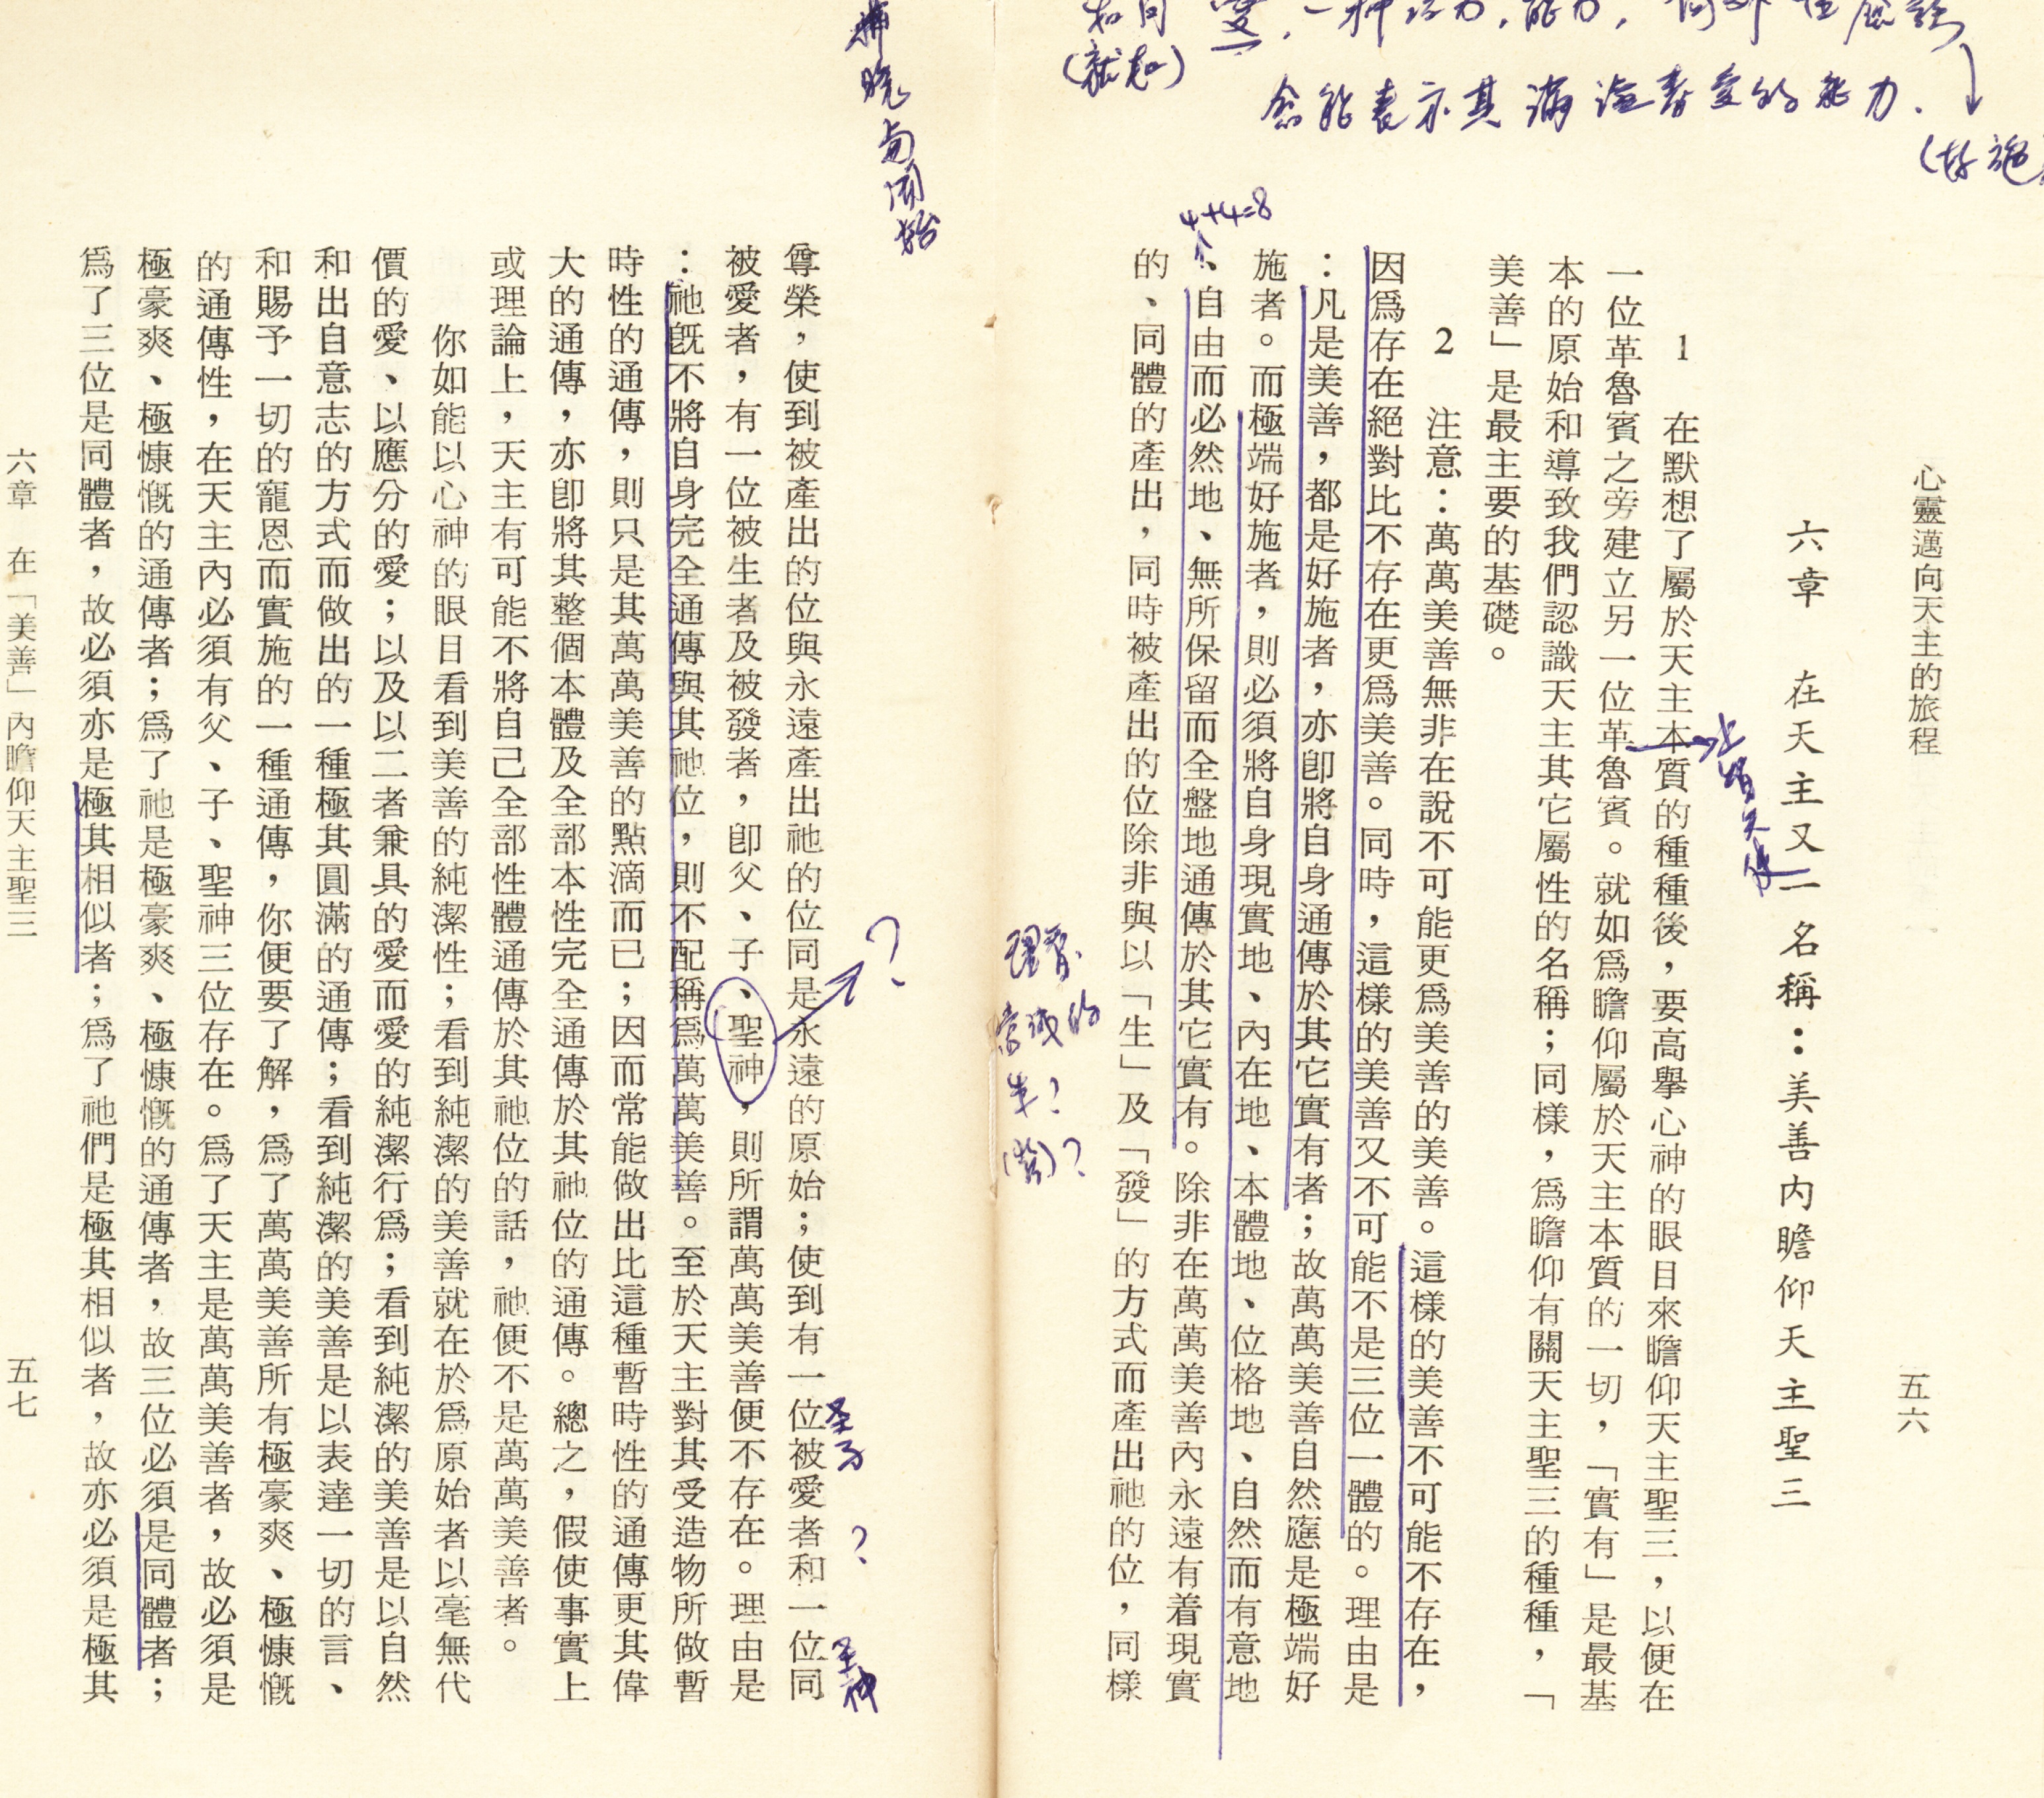 心靈邁向天主的旅程
五六
六章 在天主又一名稱：美善內瞻仰天主聖三
1 在默想了屬於天主本質的種種後，要高舉心神的眼目來瞻仰天主聖三，以便在
一位革魯賓之旁建立另一位革魯賓。就如爲瞻仰屬於天主本質的一切，「實有」是最基
本的原始和導致我們認識天主其它屬性的名稱；同樣，爲瞻仰有關天主聖三的種種，「
美善」是最主要的基礎。
2 注意：萬萬美善無非在說不可能更爲美善的美善。這樣的美善不可能不存在，
因爲存在絕對比不存在更爲美善。同時，這樣的美善又不可能不是三位一體的。理由是
：凡是美善，都是好施者，亦卽將自身通傳於其它實有者；故萬萬美善自然應是極端好
施者。而極端好施者，則必須將自身現實地、內在地、本體地、位格地、自然而有意地
、自由而必然地、無所保留而全盤地通傳於其它實有。除非在萬萬美善內永遠有着現實
的、同體的產出，同時被產出的位除非與以「生」及「發」的方式而產出祂的位，同樣
4+4=8
愛
能力
(就如)
能表示其滿溢着愛的能力．
?
?
尊榮，使到被產出的位與永遠產出祂的位同是永遠的原始；使到有一位被愛者和一位同
被愛者，有一位被生者及被發者，卽父、子、聖神，則所謂萬萬美善便不存在。理由是
：祂旣不將自身完全通傳與其祂位，則不配稱爲萬萬美善。至於天主對其受造物所做暫
時性的通傳，則只是其萬萬美善的點滴而已；因而常能做出比這種暫時性的通傳更其偉
大的通傳，亦卽將其整個本體及全部本性完全通傳於其祂位的通傳。總之，假使事實上
或理論上，天主有可能不將自己全部性體通傳於其祂位的話，祂便不是萬萬美善者。
你如能以心神的眼目看到美善的純潔性；看到純潔的美善就在於爲原始者以毫無代
價的愛、以應分的愛；以及以二者兼具的愛而愛的純潔行爲；看到純潔的美善是以自然
和出自意志的方式而做出的一種極其圓滿的通傳；看到純潔的美善是以表達一切的言、
和賜予一切的寵恩而實施的一種通傳，你便要了解，爲了萬萬美善所有極豪爽、極慷慨
的通傳性，在天主內必須有父、子、聖神三位存在。爲了天主是萬萬美善者，故必須是
極豪爽、極慷慨的通傳者；爲了祂是極豪爽、極慷慨的通傳者，故三位必須是同體者；
爲了三位是同體者，故必須亦是極其相似者；爲了祂們是極其相似者，故亦必須是極其
?
圣子
?
圣神
六章 在「美善」內瞻仰天主聖三
五七